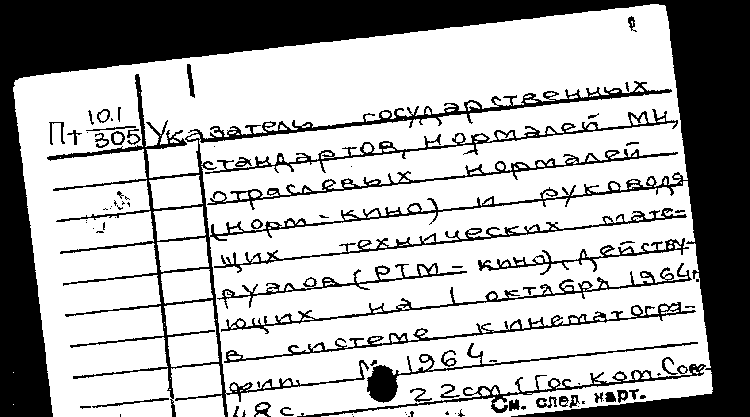 Пт 10.1/305 Указатель государственных
стандартов, нормалей МН,
отраслевых нормалей
(норм-кино) и руководя
щих технических мате=
руалов (РТМ= кино), действу-
ющих на 1 октября 1964г.
в системе кинематогра=
фии. М., 1964.
48с. 22см (Гос. Ком. Сове-
См. след. карт.